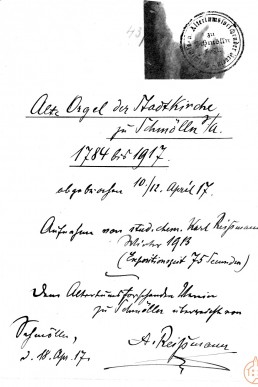 Alte Orgel der Stadtkirche
zu Schmölln S/A.
1784 bis 1917.
abgebrochen 10/12. April 17.
Aufnahme von stud. chem. Karl Reißmann
Winter 1913
(Expositionszeit 75 Secunden)
Dem Altertumsforschenden Verein
zu Schmölln überreicht von
Schmölln,
d. 18. Apr. 17.
A. Reißmann